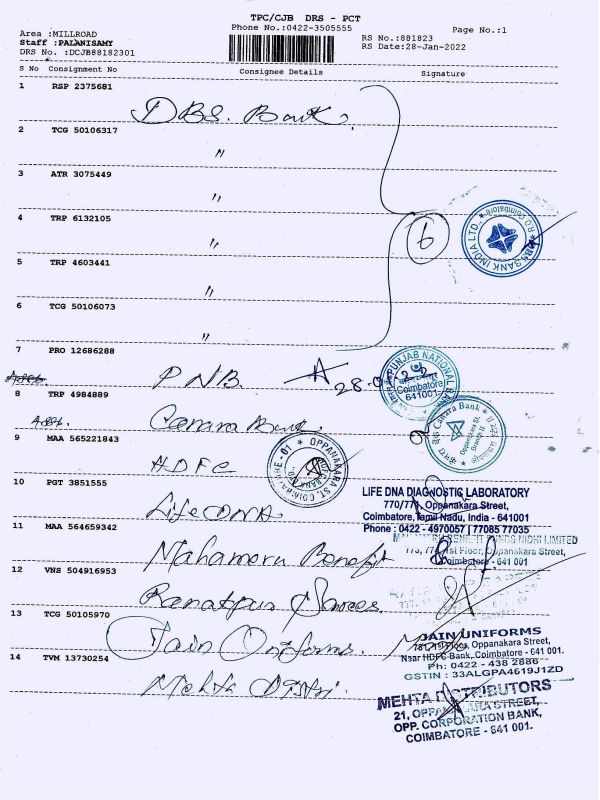 TPC/CJB DRS - PCT
Phone No.:0422-3505555
Page No.:1
Area :MILLROAD
Staff :PALANISAMY
DRS No. :DCJB88182301
RS No.:881823
RS Date:28-Jan-2022
S No Consignment No Consignee Details Signature
1 RSP 2375681
DBS. Bank.
2 TCG 50106317
"
3 ATR 3075449
"
4 TRP 6132105
"
6
DBS BANK INDIA LTD. Coimbatore
5 TRP 4603441
"
6 TCG 50106073
"
7 PRO 12686288
PNB
28-0
PUNJAB NATIONAL BANK
Coimbatore
641001
8 TRP 4984889
Canara Bank
Canara Bank
Oppanakara St.
9 MAA 565221843
HDFC
OPPANAKARA ST. COIMBATORE - 01
10 PGT 3851555
Life DNA
LIFE DNA DIAGNOSTIC LABORATORY
770/771, Oppanakara Street,
Coimbatore, Tamil Nadu, India - 641001
Phone : 0422 - 4970057 | 77085 77035
11 MAA 564659342
Mahameru Benefit
BENEFIT FUNDS NIDHI LIMITED
1st Floor, Oppanakara Street,
Coimbatore - 641 001
12 VNS 504916953
Ranatpur Sarees.
13 TCG 50105970
Jain Uniforms.
JAIN UNIFORMS
1st Floor, Oppanakara Street,
Near HDFC Bank, Coimbatore - 641 001.
Ph: 0422 - 438 2886
GSTIN : 33ALGPA4619J1ZD
14 TVM 13730254
Mehta Distri.
MEHTA DISTRIBUTORS
21, OPPANAKARA STREET,
OPP. CORPORATION BANK,
COIMBATORE - 641 001.